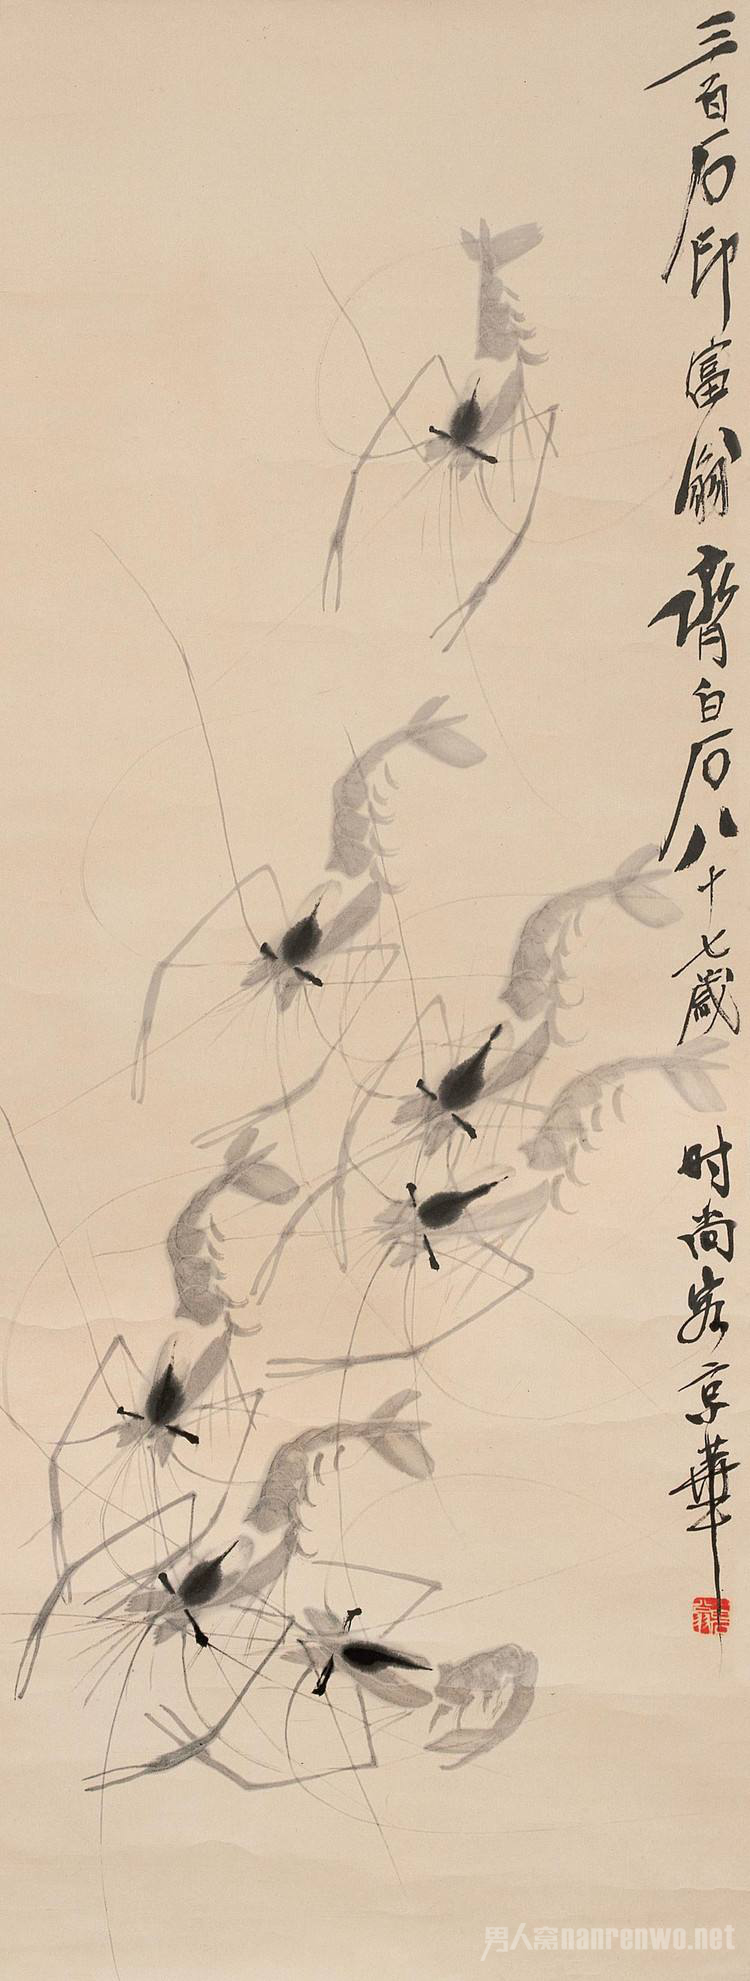 三百石印富翁齊白石八十七歲时尚客京華
男人窝nanrenwo.net